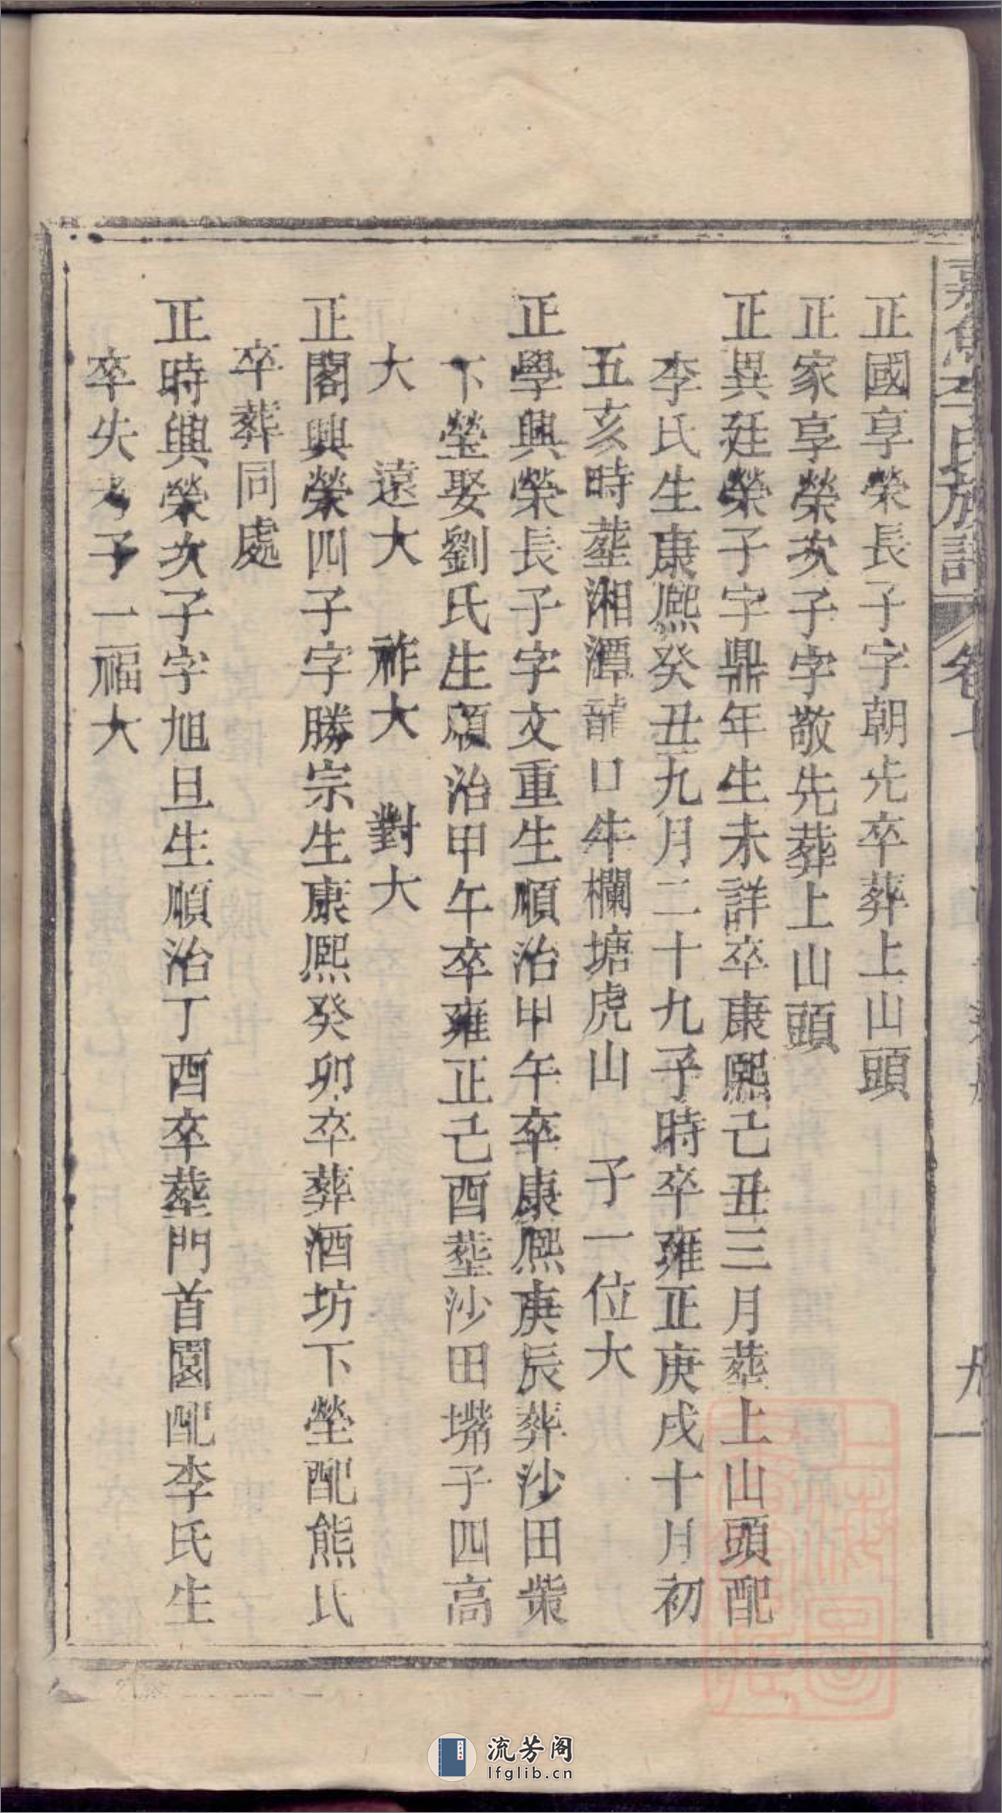 嘉魚李氏族譜 卷
正國享榮長子字朝先卒葬上山頭
正家享榮次子字敬先葬上山頭
正異廷榮子字鼎年生未詳卒康熙己丑三月葬上山頭配
李氏生康熙癸丑九月二十九子時卒雍正庚戌十月初
五亥時塟湘潭龍口牛欄塘虎山 子一位大
正學興榮長子字文重生順治甲午卒康熙庚辰葬沙田柴
下瑩娶劉氏生順治甲午卒雍正己酉塟沙田嘴子四高
大 遠大 祚大 對大
正閣興榮四子字勝宗生康熙癸卯卒葬酒坊下瑩配熊氏
卒葬同處
正時興榮次子字旭旦生順治丁酉卒塟門首園配李氏生
卒失考子一福大
流芳阁
lfglib.cn